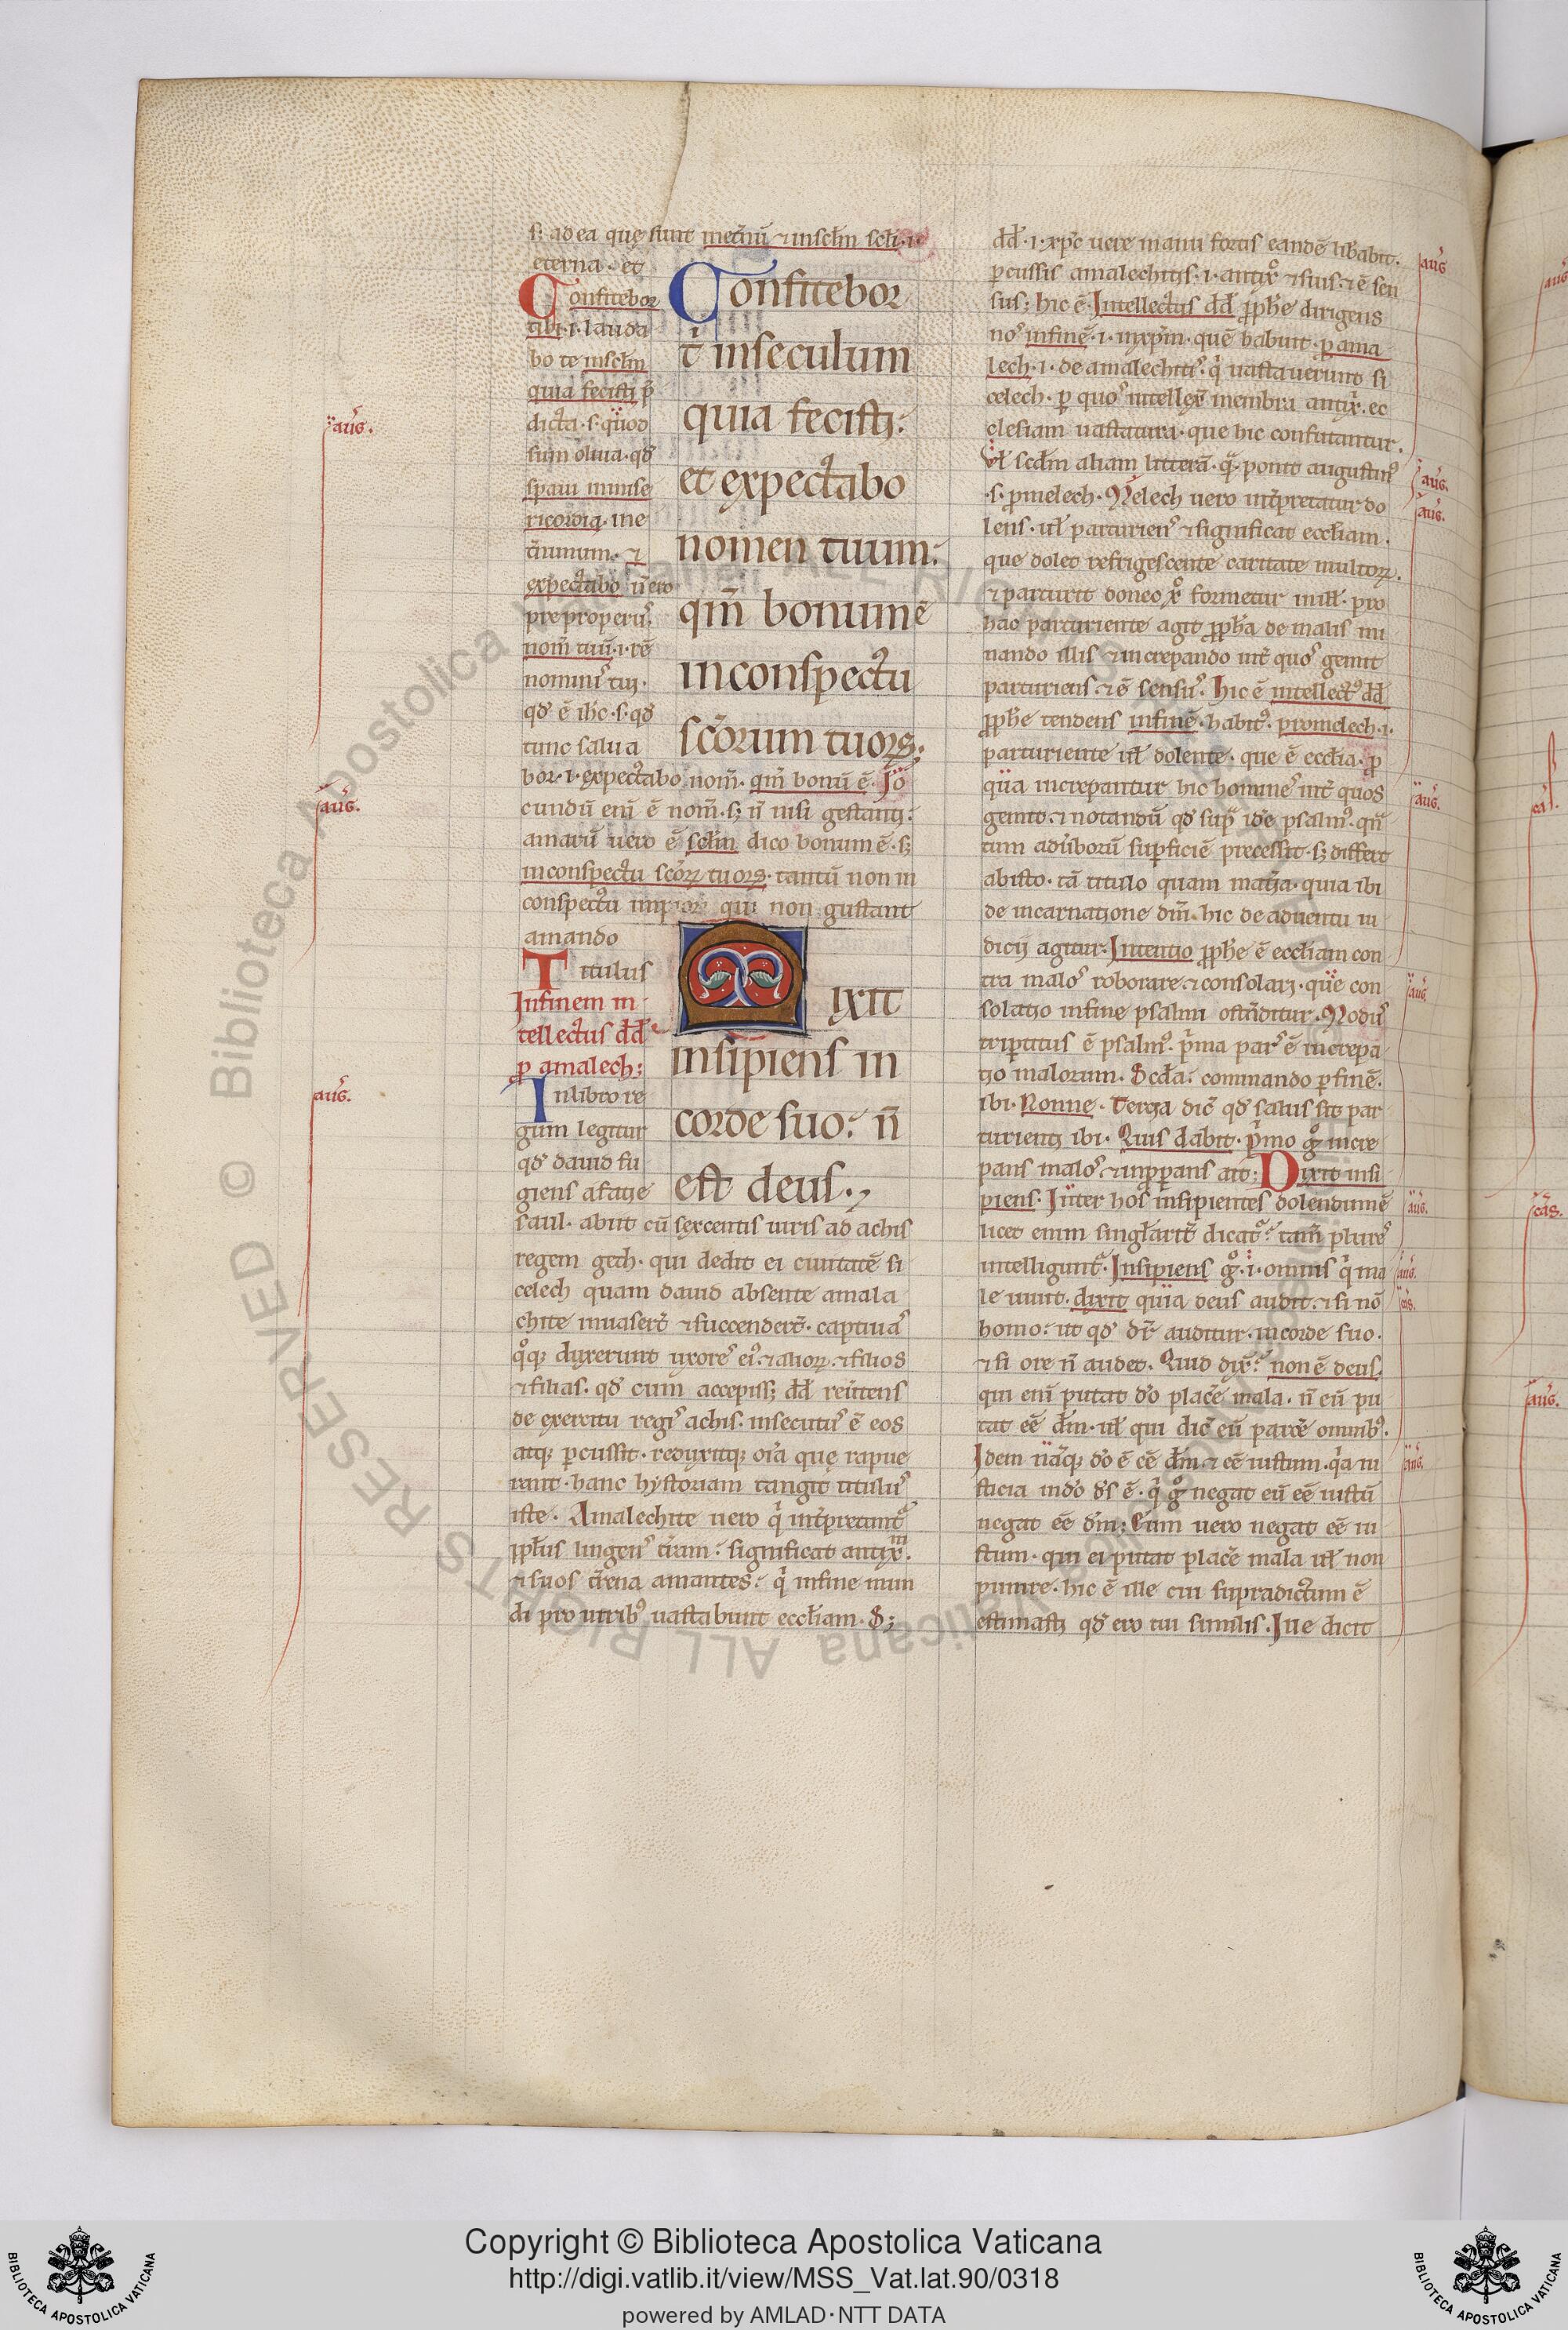 s; ad ea que sunt inet̃nũ ⁊ insecl̃m secl̃i .i.
eterna . et
Confitebor
tibi .i. lauda
bo te insecl̃m
quia fecisti p̃
dicta .s. quod
sum oliua . qđ
speraui in mise
ricordia . me
ternum . ⁊
expectabo ñ ero
preproperus
nom̃ tuũ .i. rẽ
nominis tui .
qđ ẽ ih̃c .s. qđ
tunc salua
Confitebor
t' inseculum
quia fecisti :
et expectabo
nomen tuum :
qm̃ bonum ẽ
inconspectu
scõrum tuorꝝ :
bor .i. expectabo nom̃ . qm̃ bonũ ẽ . Jo
cundũ eni ẽ nom̃ . sꝫ ñ nisi gestanti :
amarũ uero ẽ secl̃m dico bonum ẽ . sꝫ
inconspectu scõꝝ tuorꝝ . tantũ non in
conspectu impiorꝝ qui non gustant
amando
Titulus
Infinem in
tellectus dđ
ꝓ amalech :
In libro re
gum legitur
qđ dauid fu
giens a facie
Dixit
insipiens in
corde suo : ñ
est deus .
saul . abiit cũ sexcentis uiris ad achis
regem geth . qui dedit ei ciuitatẽ si
celech quam dauid absente amala
chite inuasert̃ ⁊ succendert̃ . captiuas
qoqꝫ duxerunt uxores ei⁹ . ⁊ aliorꝝ . ⁊ filios
⁊ filias . qđ cum accepissꝫ dđ reũtens
de exercitu regis achis . insecutus ẽ eos
atqꝫ ꝑcussit . reduxitqꝫ oĩa que rapue
rant . hanc hystoriam tangit titulus
iste . Amalechite uero qi int̃pretant̃
ppl̃us lingens t̃ram : significat antixm̃ .
⁊ suos t̃rena amantes : qi infine mun
di pro uirib⁹ uastabunt eccl̃iam . Sꝫ
dđ .i. xp̃c uere manu fortis eandẽ lib̃abit .
ꝑcussis amalechitis .i. antixo ⁊ suis . ⁊ ẽ sen
sus ; hic ẽ . Intellectus dđ ꝓph̃e dirigens
nos infinẽ .i. inxp̃m . quẽ habuit . ꝓ ama
lech .i. de amalechitis : qi uastauerunt si
celech . ꝑ quos intellexit membra antixi . ec
clesiam uastatura . que hic confutantur .
Vl̃ scđm aliam litterã . qa ponit augustin⁹
.s. ꝓ melech . Melech uero int̃pretatur do
lens . ul̃ parturiens ⁊ significat eccl̃iam .
que dolet refrigescente caritate multorꝝ .
⁊ parturit donec xo formetur in ill̃ . pro
hac parturiente agit ꝓph̃a de malis mi
nando illis ⁊ increpando int̃ quos gemit
parturiens . ⁊ ẽ sensus . hic ẽ intellect⁹ dđ
ꝓph̃e tendens infinẽ . habit⁹ . pro melech .i.
parturiente ul̃ dolente . que ẽ eccl̃ia . ꝓ
qua increpantur hic homines int̃ quos
gemit . ⁊ notandũ qđ supra idẽ psalm⁹ . qñ
tum aduerborũ suꝑficiẽ precessit . sꝫ differt
abisto . tã titulo quam mat̃ia . quia ibi
de incarnatione dñi . hic de aduentu iu
dicii agitur : Intentio ꝓph̃e ẽ eccl̃iam con
tra malos roborare . ⁊ consolari . que con
solatio infine psalmi ostenditur . Modus
tripertitus ẽ psalm⁹ . prima pars ẽ increpa
tio malorum . Scđa : commando ꝑfinẽ .
ibi . Nonne . Tercia dic̃ qđ salus sit par
turienti ibi . Quis dabit . primo go incre
pans malos ⁊ inproꝑans ait : Dixit insi
piens . Inter hos insipientes dolendum ẽ
licet enim singl̃arit̃ dicat̃ : tam̃ plures
intelligunt̃ . Insipiens go .i. omnis qi ma
le uiuit . dixit quia deus audit . ⁊ si nõ
homo : ut qđ dr̃ auditur . in corde suo .
⁊ si ore ñ audet . Quid dix̃ : non ẽ deus .
qui eni putat đo plac̃e mala . ñ eũ pu
tat eẽ đm . ul̃ qui dic̃ eũ parc̃e omnib⁹ .
Idem naqꝫ đo ẽ eẽ đm ⁊ eẽ iustum . qa iu
sticia in đo đs ẽ . qi go negat eũ eẽ iustũ
negat eẽ đm : Eum uero negat eẽ iu
stum . qui ei putat plac̃e mala ul̃ non
punire . hic ẽ ille cui supradictum ẽ
estimasti qđ ero tui similis . Iue dicit
aug̃.
aug̃.
aug̃.
aug̃
aug̃.
aug̃.
aug̃.
aug̃
aug̃.
aug̃.
cas̃.
aug̃.
Copyright © Biblioteca Apostolica Vaticana
http://digi.vatlib.it/view/MSS_Vat.lat.90/0318
powered by AMLAD·NTT DATA
BIBLIOTECA APOSTOLICA VATICANA
BIBLIOTECA APOSTOLICA VATICANA